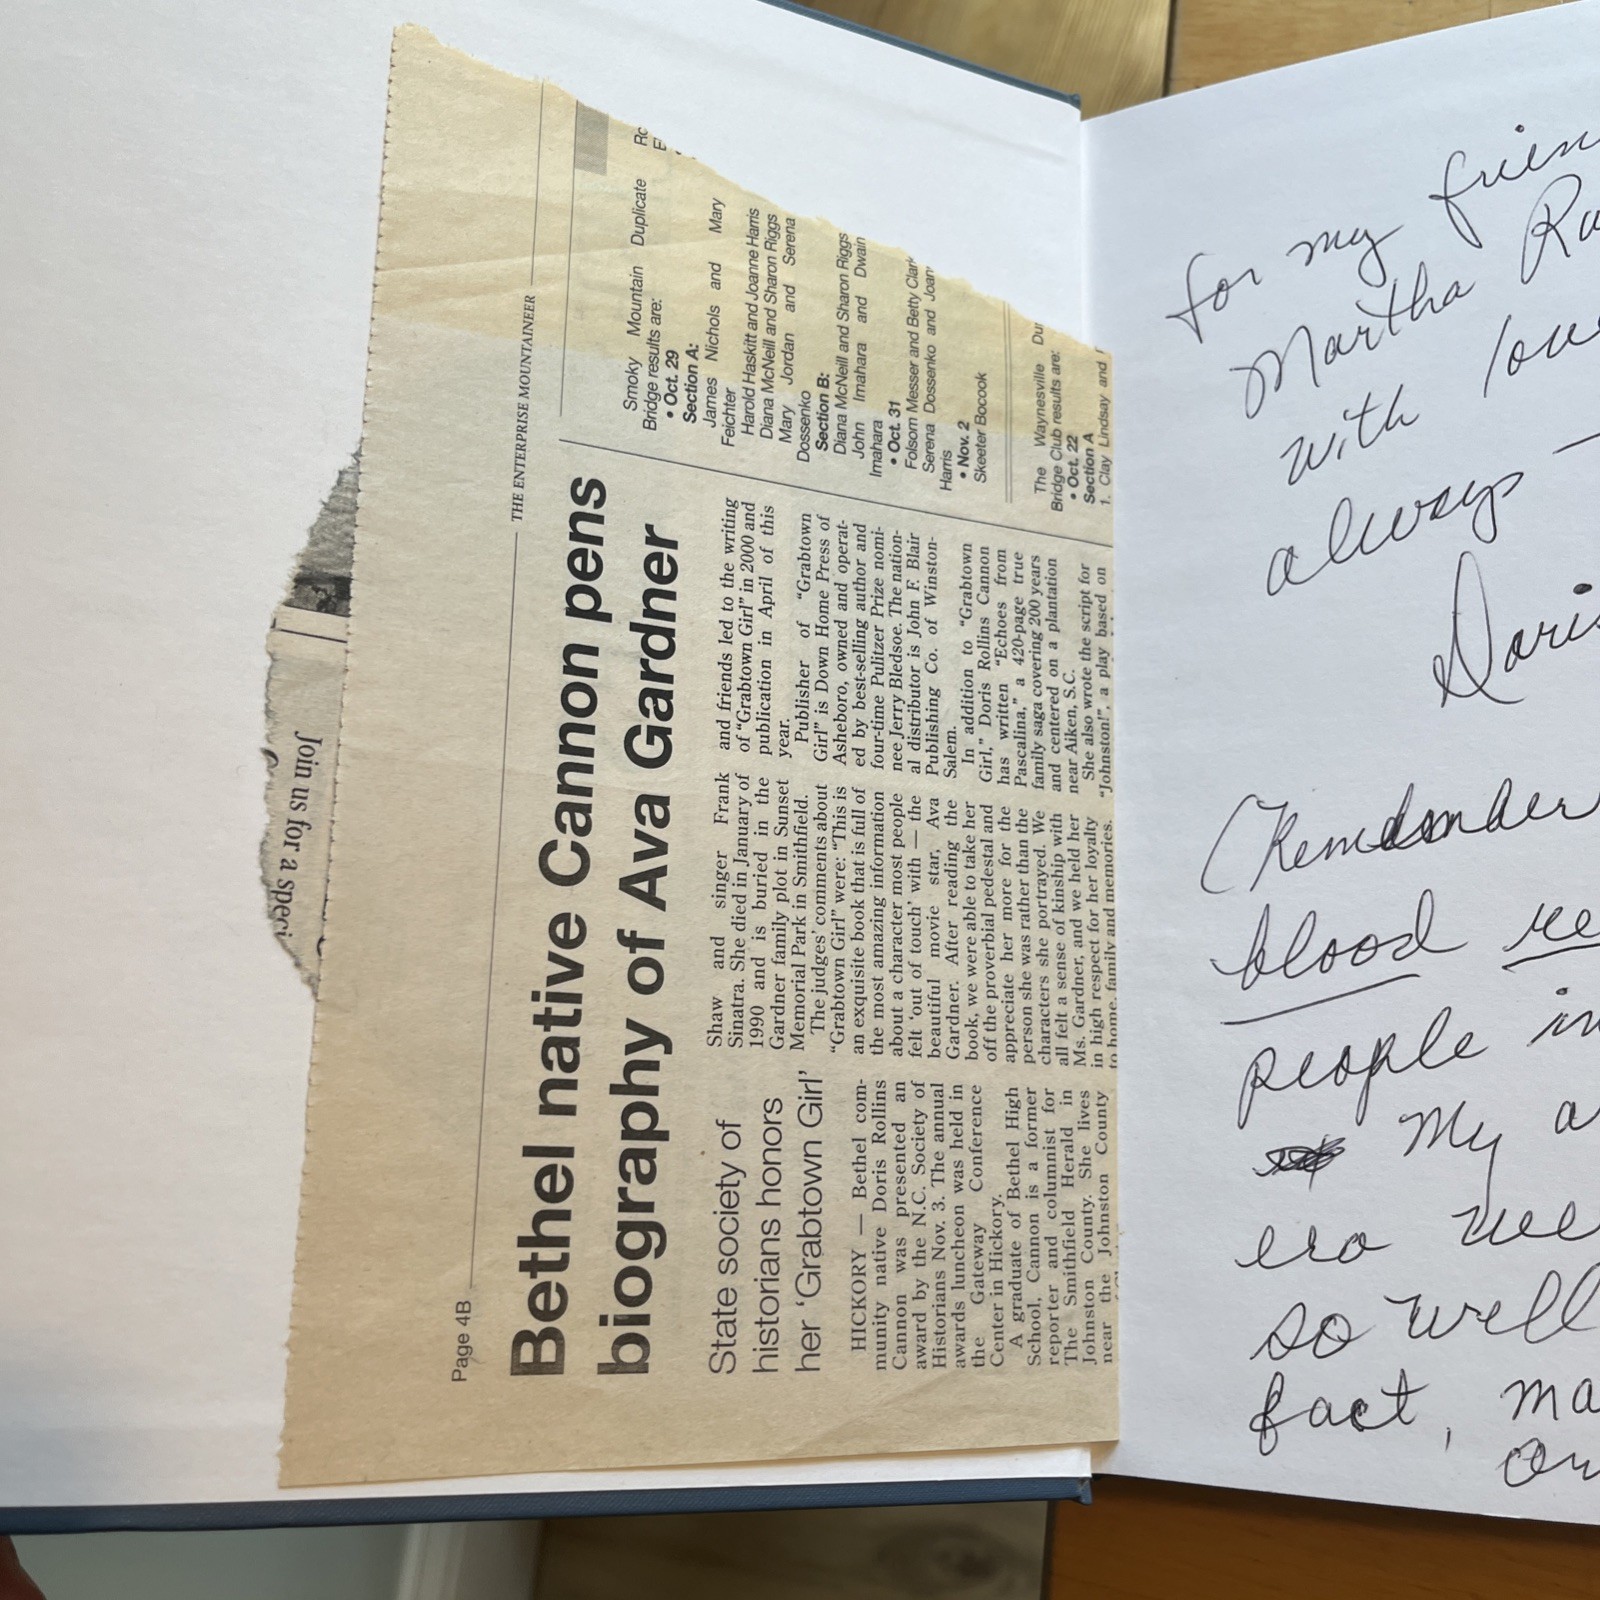 Page 4B
THE ENTERPRISE MOUNTAINEER
Bethel native Cannon pens
biography of Ava Gardner
State society of
historians honors
her ‘Grabtown Girl’
HICKORY — Bethel com-
munity native Doris Rollins
Cannon was presented an
award by the N.C. Society of
Historians Nov. 3. The annual
awards luncheon was held in
the Gateway Conference
Center in Hickory.
A graduate of Bethel High
School, Cannon is a former
reporter and columnist for
The Smithfield Herald in
Johnston County. She lives
near the Johnston County
Shaw and singer Frank
Sinatra. She died in January of
1990 and is buried in the
Gardner family plot in Sunset
Memorial Park in Smithfield.
The judges' comments about
“Grabtown Girl” were: “This is
an exquisite book that is full of
the most amazing information
about a character most people
felt ‘out of touch’ with — the
beautiful movie star, Ava
Gardner. After reading the
book, we were able to take her
off the proverbial pedestal and
appreciate her more for the
person she was rather than the
characters she portrayed. We
all felt a sense of kinship with
Ms. Gardner, and we held her
in high respect for her loyalty
to home, family and memories.
and friends led to the writing
of “Grabtown Girl” in 2000 and
publication in April of this
year.
Publisher of “Grabtown
Girl” is Down Home Press of
Asheboro, owned and operat-
ed by best-selling author and
four-time Pulitzer Prize nomi-
nee Jerry Bledsoe. The nation-
al distributor is John F. Blair
Publishing Co. of Winston-
Salem.
In addition to “Grabtown
Girl,” Doris Rollins Cannon
has written “Echoes from
Pascalina,” a 420-page true
family saga covering 200 years
and centered on a plantation
near Aiken, S.C.
She also wrote the script for
“Johnston!”, a play based on
Smoky Mountain Duplicate
Bridge results are:
• Oct. 29
Section A:
James Nichols and Mary
Feichter
Harold Haskitt and Joanne Harris
Diana McNeill and Sharon Riggs
Mary Jordan and Serena
Dossenko
Section B:
Diana McNeill and Sharon Riggs
John Imahara and Dwain
Imahara
• Oct. 31
Folsom Messer and Betty Clark
Serena Dossenko and Joan
Harris
• Nov. 2
Skeeter Bocook
The Waynesville Du
Bridge Club results are:
• Oct. 22
Section A
1. Clay Lindsay and
Join us for a speci
for my frien
Martha Ro
with love
always —
Doris
(Remember
blood re
people in
My a
era we
so well
fact, ma